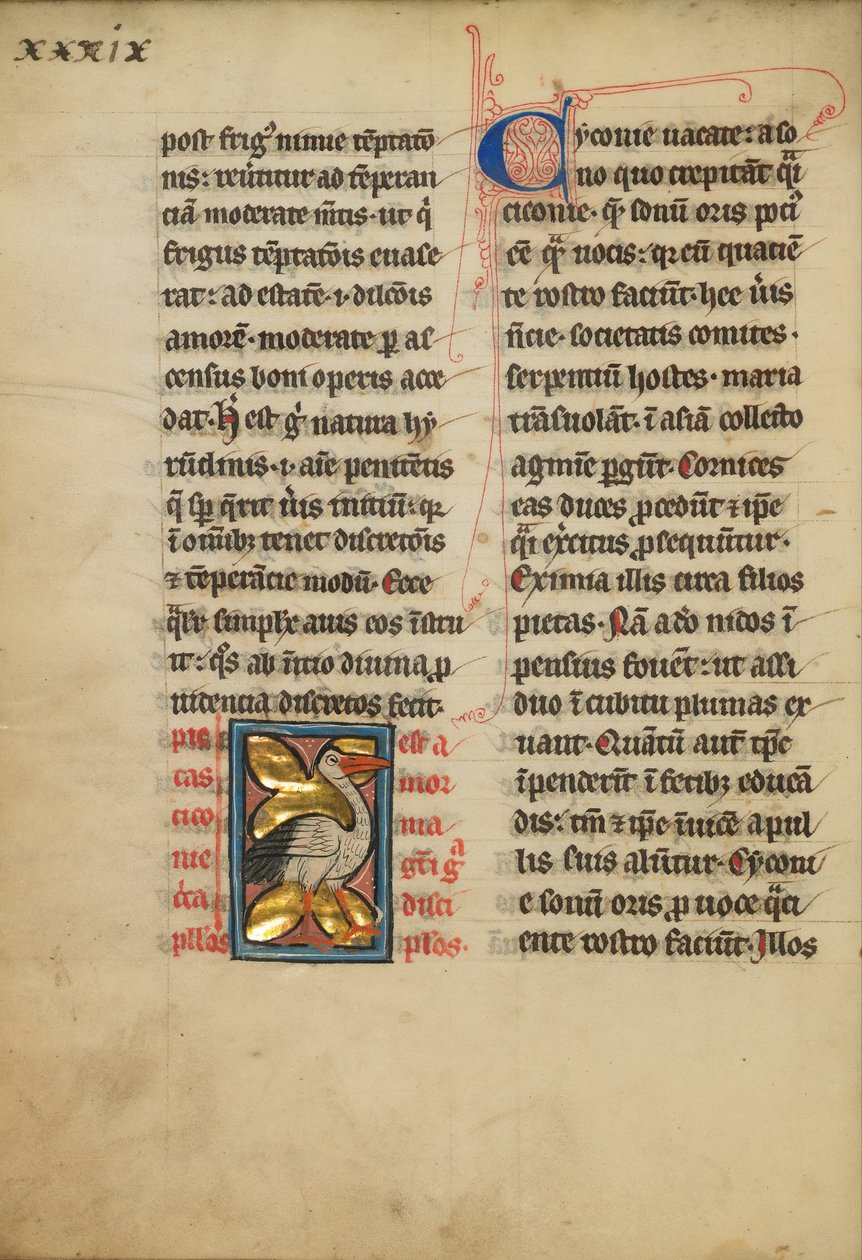 xxxix
post frigꝰ nimie tēptatō
nis: reūtitur ad tēperan
ciā moderate mētis· ut q̄
frigus tēptatōis euase
rat: ad estatē ·i· dilcōis
amorē· moderate ꝑ as
census boni operis acce
dat· H̄ est gͥ natura hy
rūdinis ·i· aīe penitētis
q̄ sꝑ q̄rit ūis initiū: qꝛ
ī omībꝫ tenet discretōis
⁊ tēperācie modū· Ecce
qͣlr̄ simplex auis eos īstru
it: qͦs ab īitio diuina ꝓ
uidencia discretos fecit·
pie
tas
cico
nie
cͥca
pllōs
est a
mor
mia
gr̄i gͣ
disci
pl'os·
Cyconie uacate: a so
no quo crepitāt qͣi
ciconie· qͥ sonū oris pociꝰ
eē qͣ uocis: qꝛ eū quacie
te rostro faciūt· hee ūis
nūcie· societatis comites·
serpentiū hostes· maria
trāsuolāt· ī asiā collecto
agmīe ꝑgūt· Cornices
eas duces ꝓcedūt ⁊ ip̄e
qͣi ex̄citus ꝓsequūtur·
Eximia illis circa filios
pietas· Nā adō nidos ī
pensius fouēt: ut assi
duo īcubitu plumas ex
uant· Quātū aut̄ tp̄e
īpenderīt ī fetibꝫ educā
dis: tm̄ ⁊ ip̄e īuicē a pul
lis suis alūtur· Cyconi
e sonū oris ꝓ uoce qͣci
ente rostro faciūt· Illos